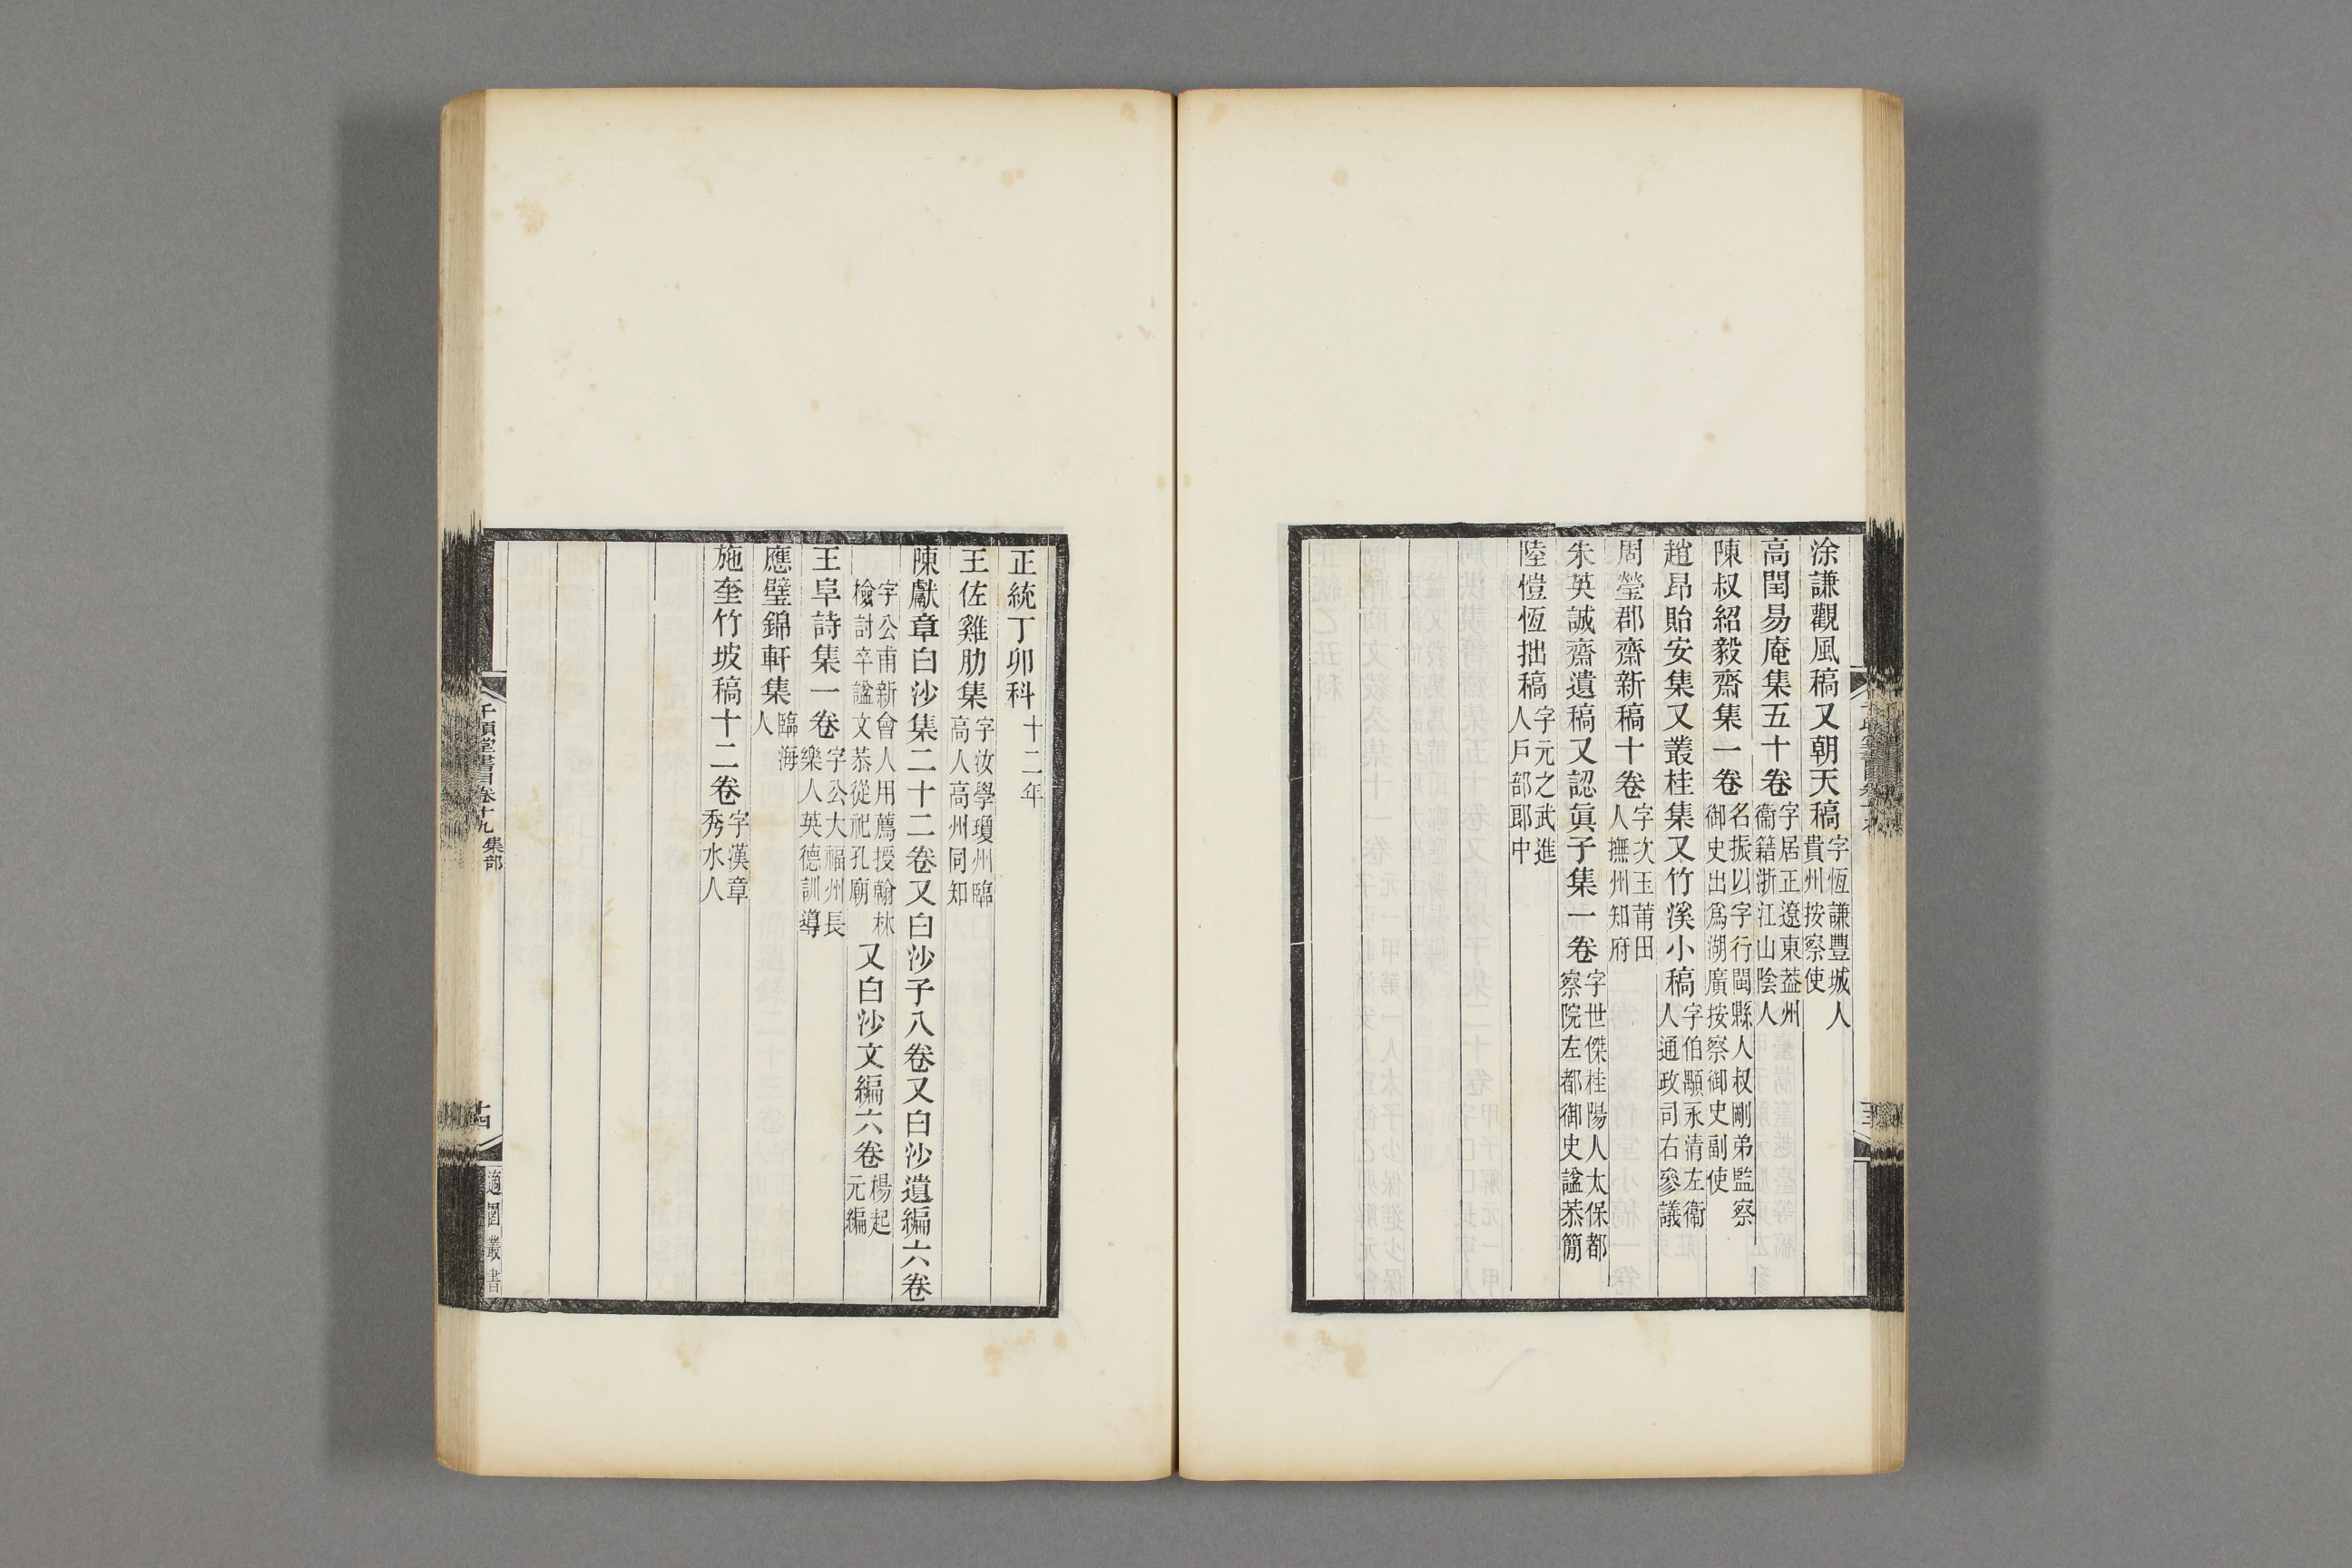 涂謙觀風稿又朝天稿字恆謙豐城人貴州按察使
高閏易庵集五十卷字居正遼東葢州衞籍浙江山陰人
陳叔紹毅齋集一卷名振以字行閩縣人叔剛弟監察御史出爲湖廣按察御史副使
趙昂貽安集又叢桂集又竹溪小稿字伯顒永清左衞人通政司右參議
周瑩郡齋新稿十卷字次玉莆田人撫州知府
朱英誠齋遺稿又認眞子集一卷字世傑桂陽人太保都察院左都御史諡恭簡
陸愷恆拙稿字元之武進人戸部郞中
正統丁卯科十二年
王佐雞肋集字汝學瓊州臨高人高州同知
陳獻章白沙集二十二卷又白沙子八卷又白沙遺編六卷
字公甫新會人用薦授翰林檢討卒諡文恭從祀孔廟又白沙文編六卷楊起元編
王阜詩集一卷字公大福州長樂人英德訓導
應璧錦軒集臨海人
施奎竹坡稿十二卷字漢章秀水人
千頃堂書目卷十九集部
十四
適園叢書